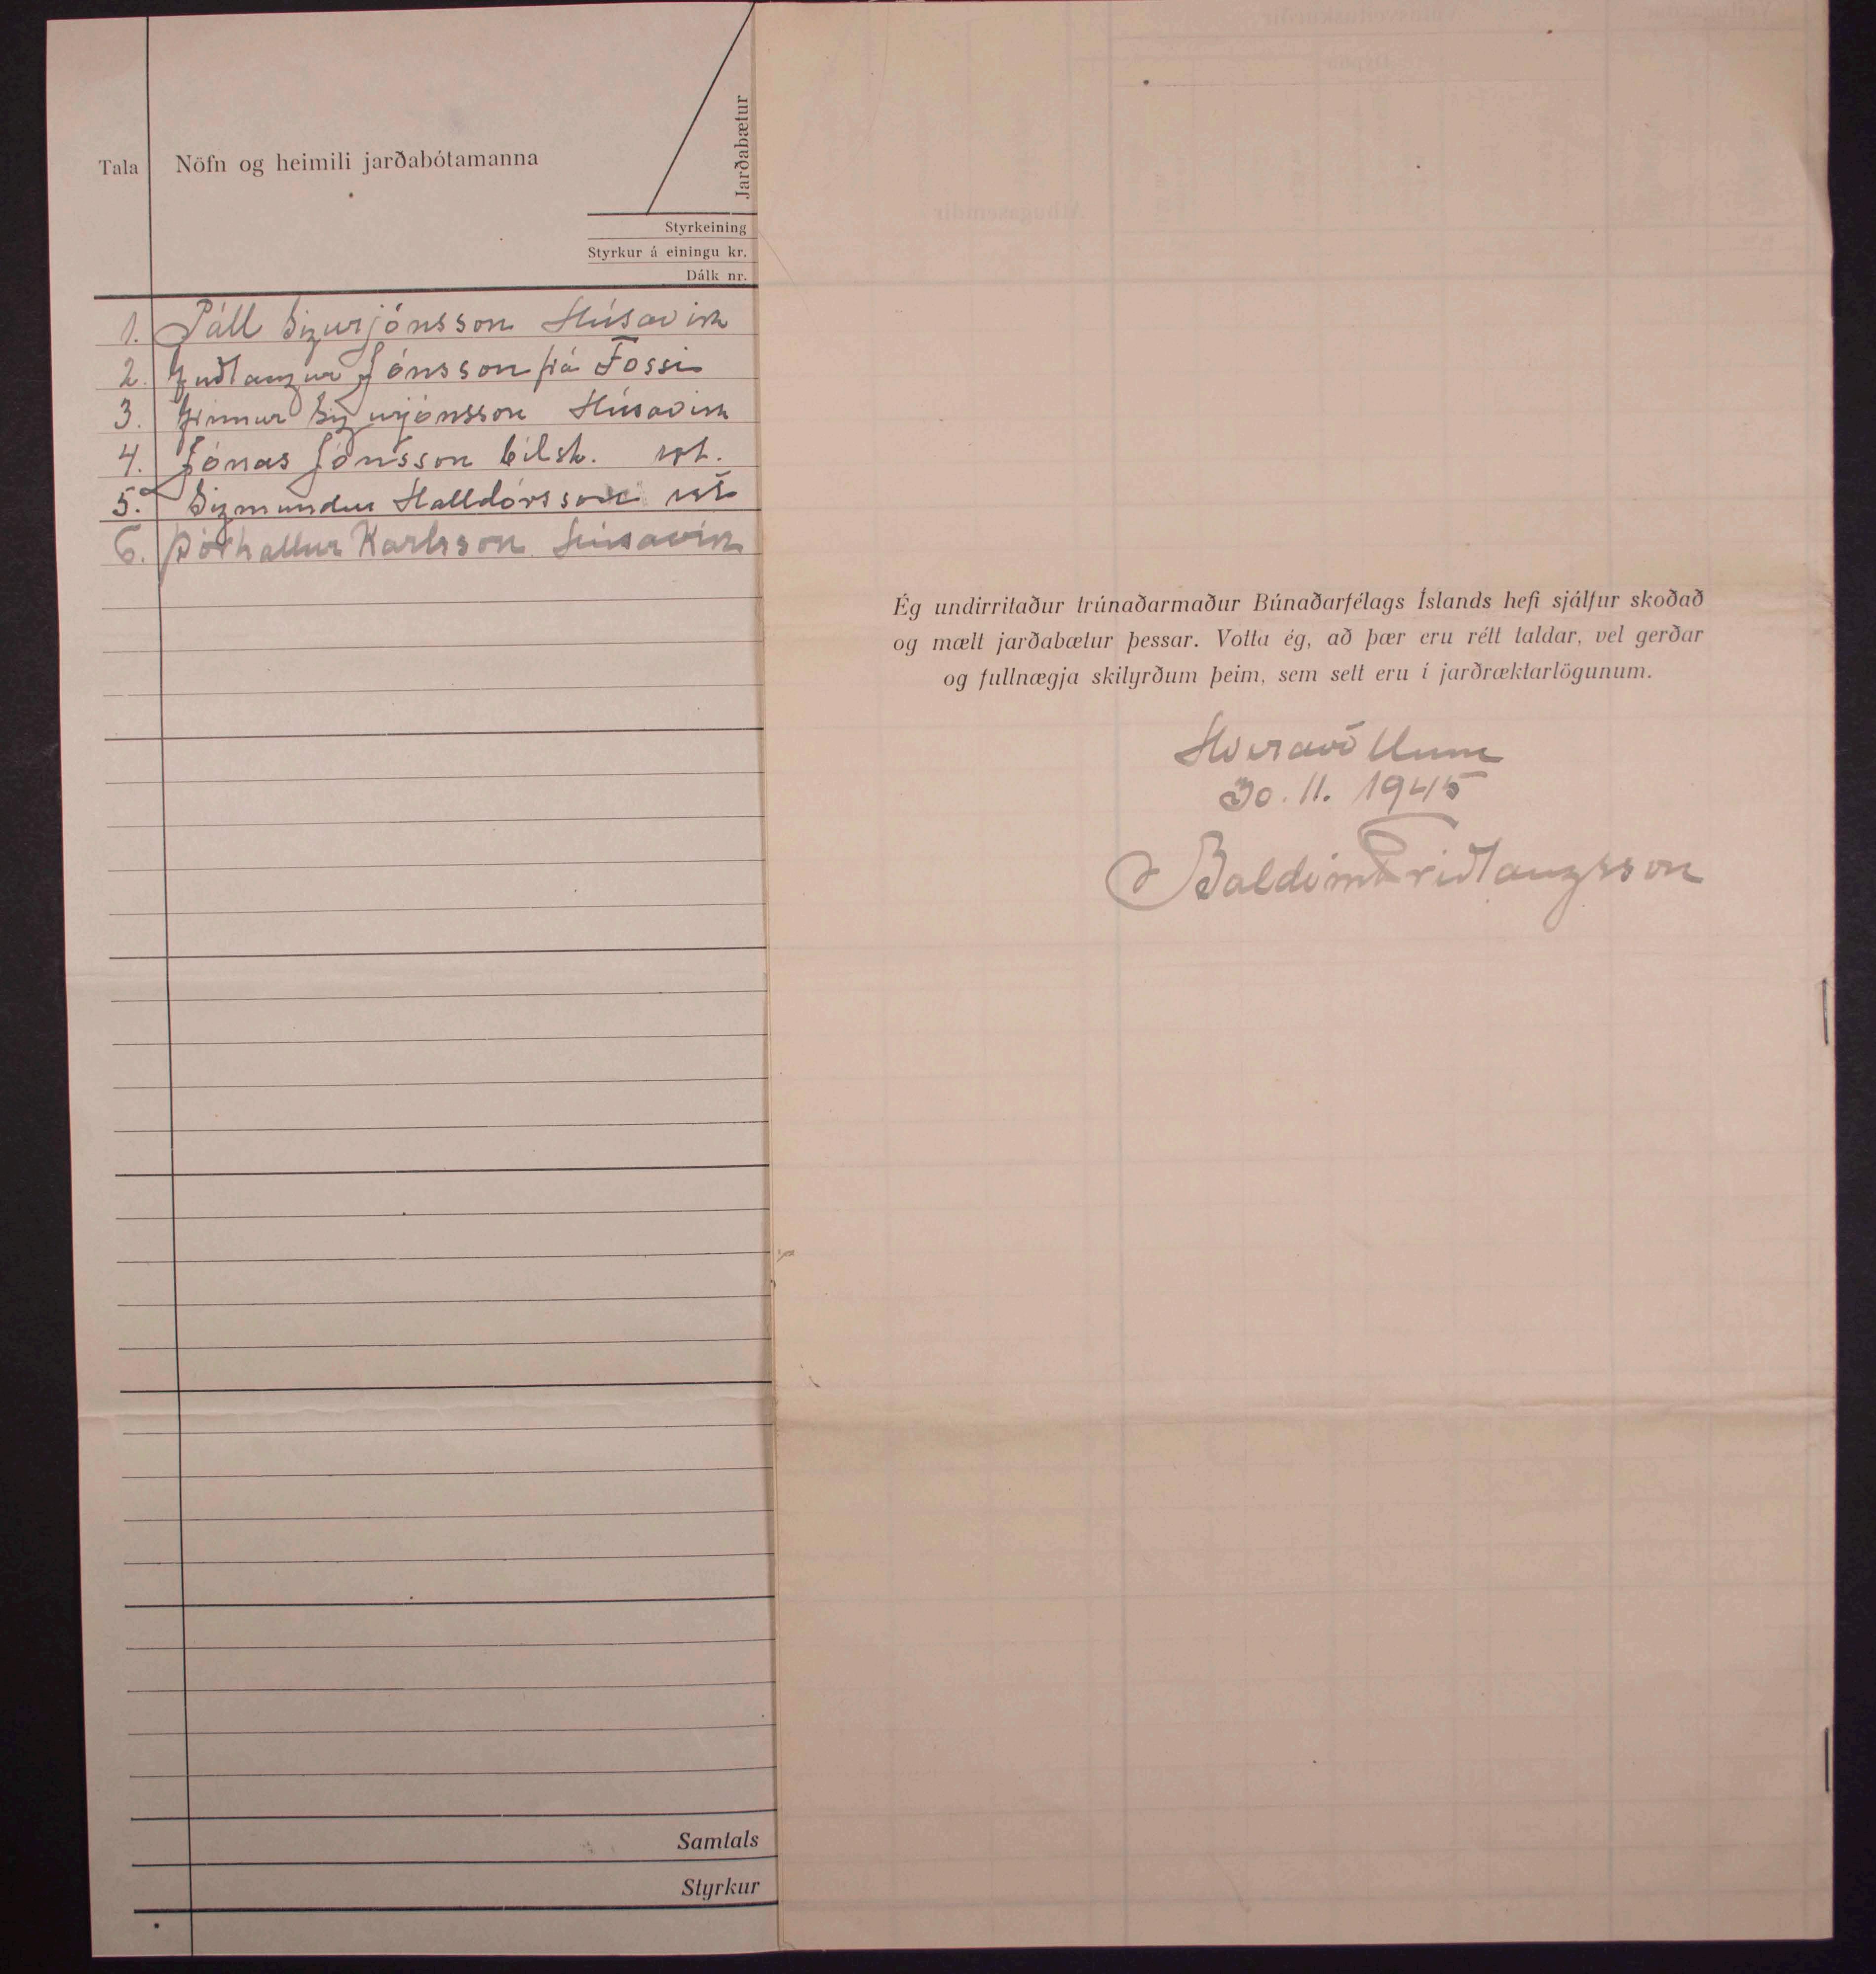 Tala
Nöfn og heimili jarðabótamanna
Jarðabætur
Styrkeining
Styrkur á einingu kr.
Dálk nr.
1. Páll Sigurjónsson Húsavík
2. Guðlaugur Jónsson frá Fossi
3. Finnur Sigurjónsson Húsavík
4. Jónas Jónsson bilsk.
5. Sigmundur Halldórsson
6. Þórhallur Karlsson Húsavík
Samtals
Styrkur
Ég undirritaður trúnaðarmaður Búnaðarfélags Íslands hefi sjálfur skoðað
og mælt jarðabætur þessar. Votta ég, að þær eru rétt taldar, vel gerðar
og fullnægja skilyrðum þeim, sem sett eru í jarðræktarlögunum.
Hveravöllum
30. 11. 1945
Baldvin Friðlaugsson